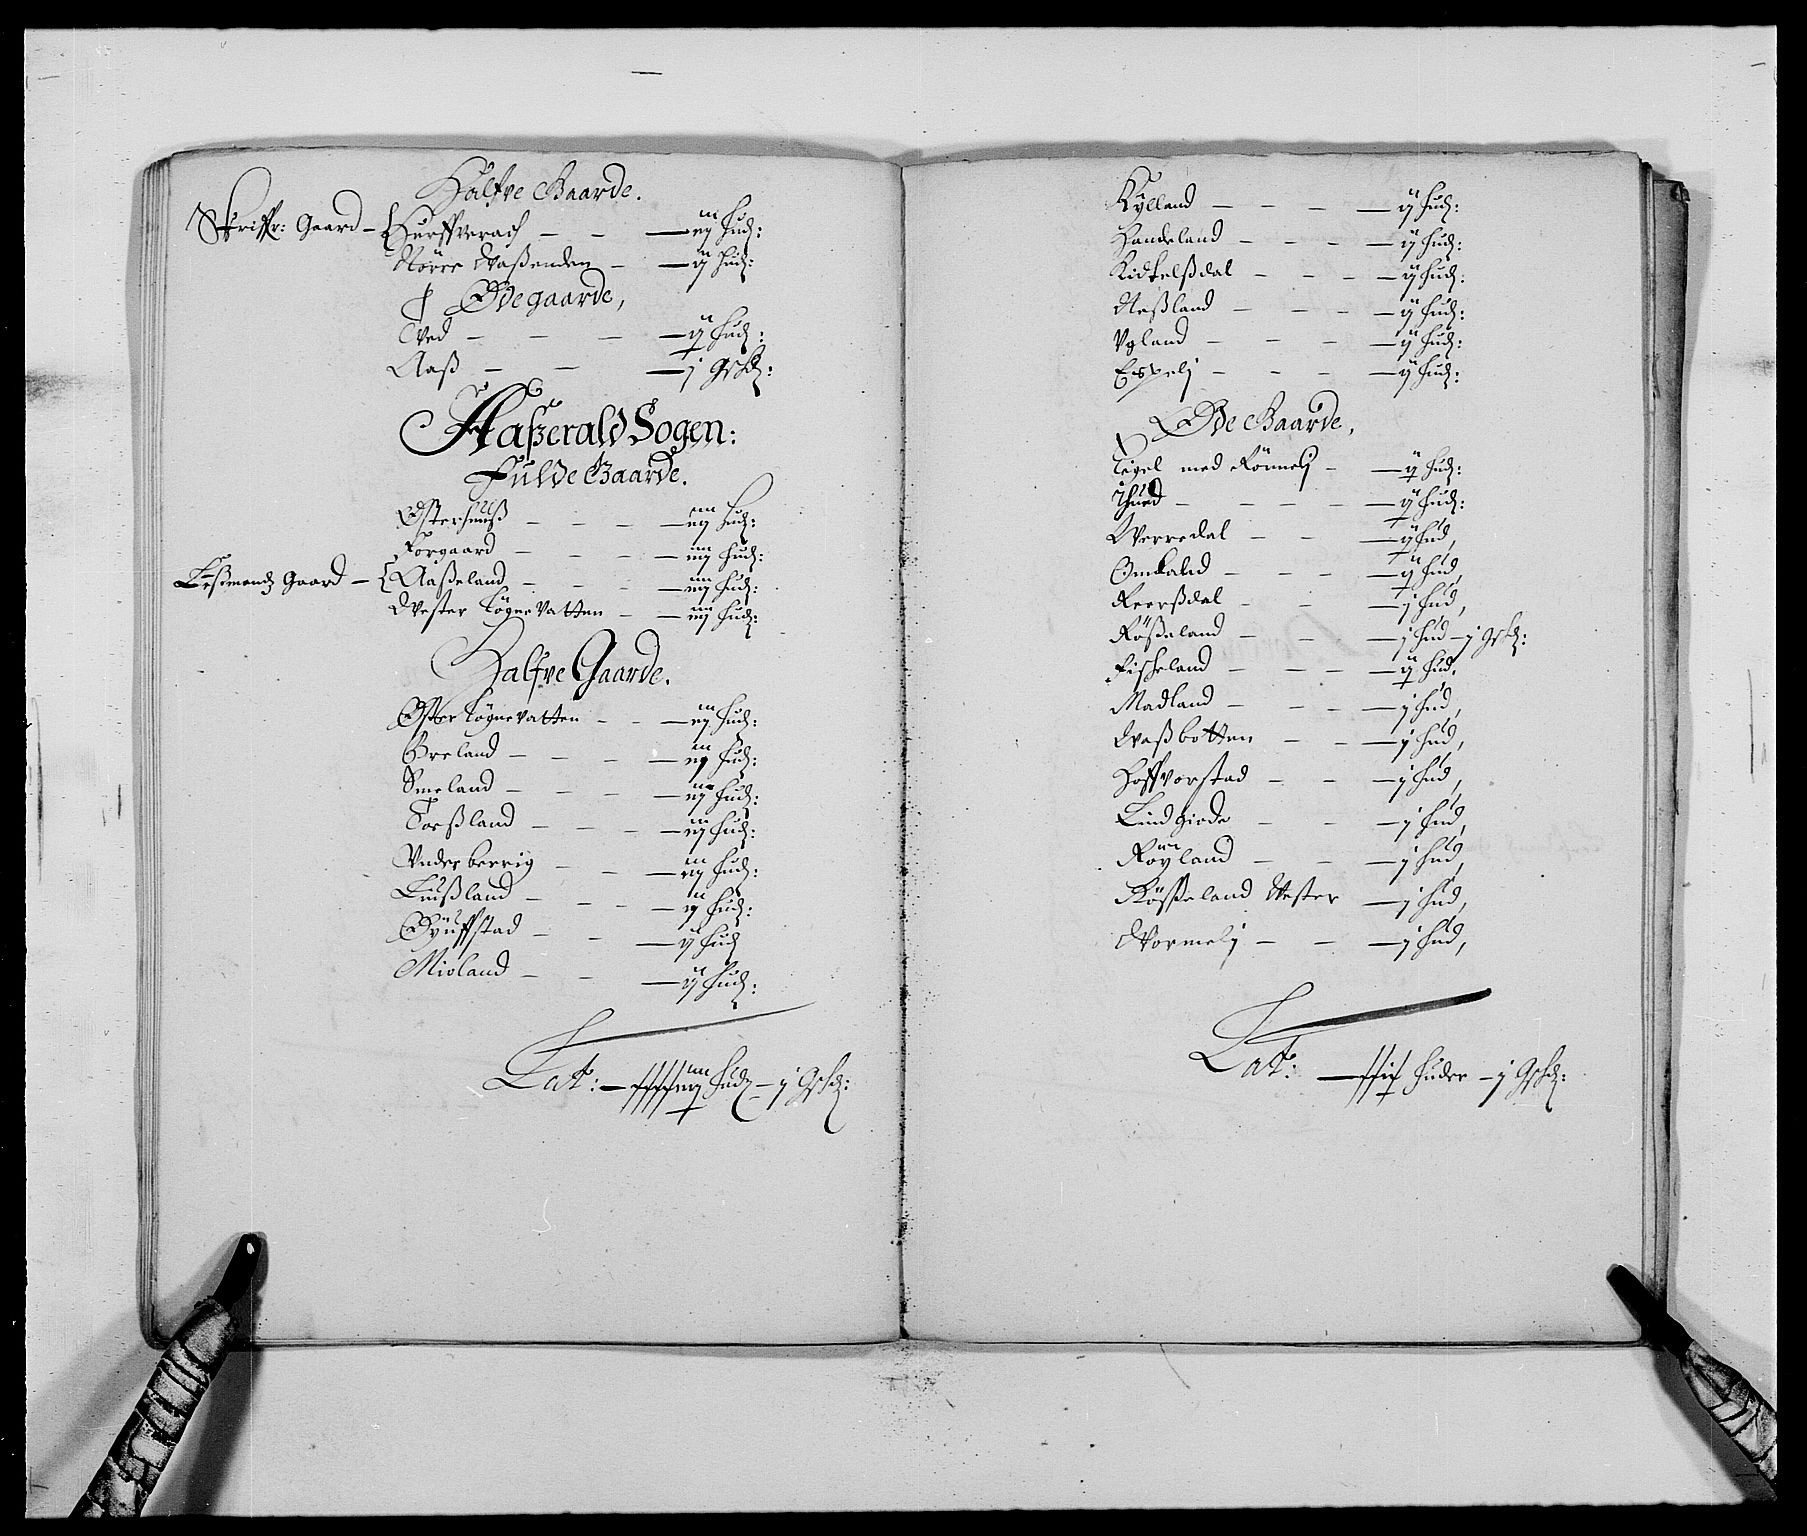 Halfve Gaarde.
Skriffr: Gaard – Hurffverach – – – iij hud:
Nörre Waßenden – – ij hud:
Ødegaarde,
Tved – – – – ij hud:
Aaß – – – j Grskd:
Aaßerald Sogen:
Fulde Gaarde.
Østerhuuß – – – – iiij hud:
Forgaard – – – – iiij hud:
Leßmandz Gaard – Aaßeland – – – – iiij hud:
Wester Lögnevatten – – iiij hud:
Halfve Gaarde.
Øster Lögnevatten – – – iij hud:
Breland – – – – iij hud:
Smeland – – – – iij hud:
Torßland – – – – iij hud:
Underberrig – – – iij hud:
Lußland – – – – iij hud:
Dyuffstad – – – ij hud
Mioland – – – ij hud:
Lat: – hud – j Grskd:
Kylland – – – – ij hud:
Handeland – – – – ij hud:
Kidkelßdal – – – – ij hud:
Neßland – – – – ij hud:
Ugland – – – – ij hud:
Eispelj – – – – ij hud:
Øde Gaarde,
Tigel med Rönnelj – – ij hud:
Thued – – – – ij hud:
Werredal – – – ij hud,
Omland – – – – ij hud,
Reerßdal – – – j hud,
Rößeland – – – j hud – j Grskd:
Fiskeland – – – ij hud.
Madland – – – – j hud,
Waßbotten – – – j hud,
Hoffvorstad – – – j hud,
Lindgiede – – – j hud,
Röyland – – – j hud,
Rößeland Vester – j hud,
Wormelj – – – j hud,
Lat: – huder – j Grskd: